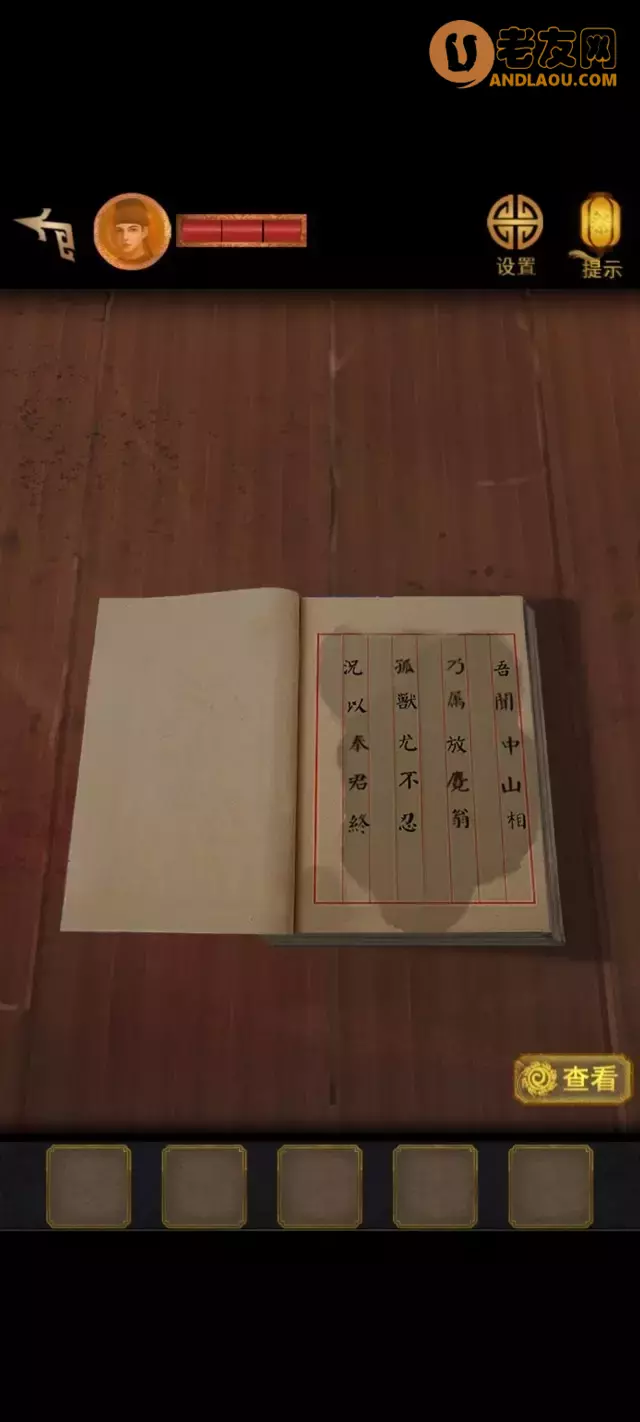 老友网
ANDLAOU.COM
设置
提示
吾聞中山相
乃属放麑翁
孤獸尤不忍
況以奉君終
查看